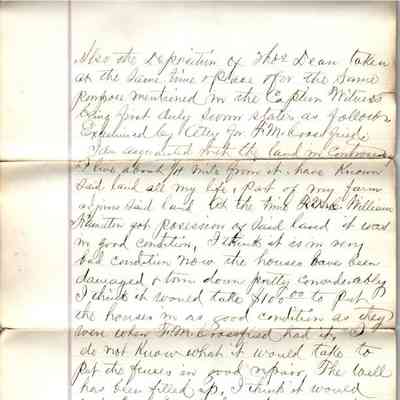 Also the Deposition of Thos Dean taken
at the same time & place & for the same
purpose mentioned in the Caption Witness
being first duly sworn states as follows
Examined by Atty for F. M. Crossfield
I am acquainted with the land in Controversy
I live about ¼ mile from it. have known
said land all my life, Part of my farm
joins said land At the time William
got possession of said land it was
in good condition, I think it is in very
bad condition now the houses have been
damaged & torn down pretty considerably
I think it would take $100.00 to put
the houses in as good condition as they
were when F. M. Crossfield had it, I
do not know what it would take to
put the fences in good repair, The well
has been filled up, I think it would